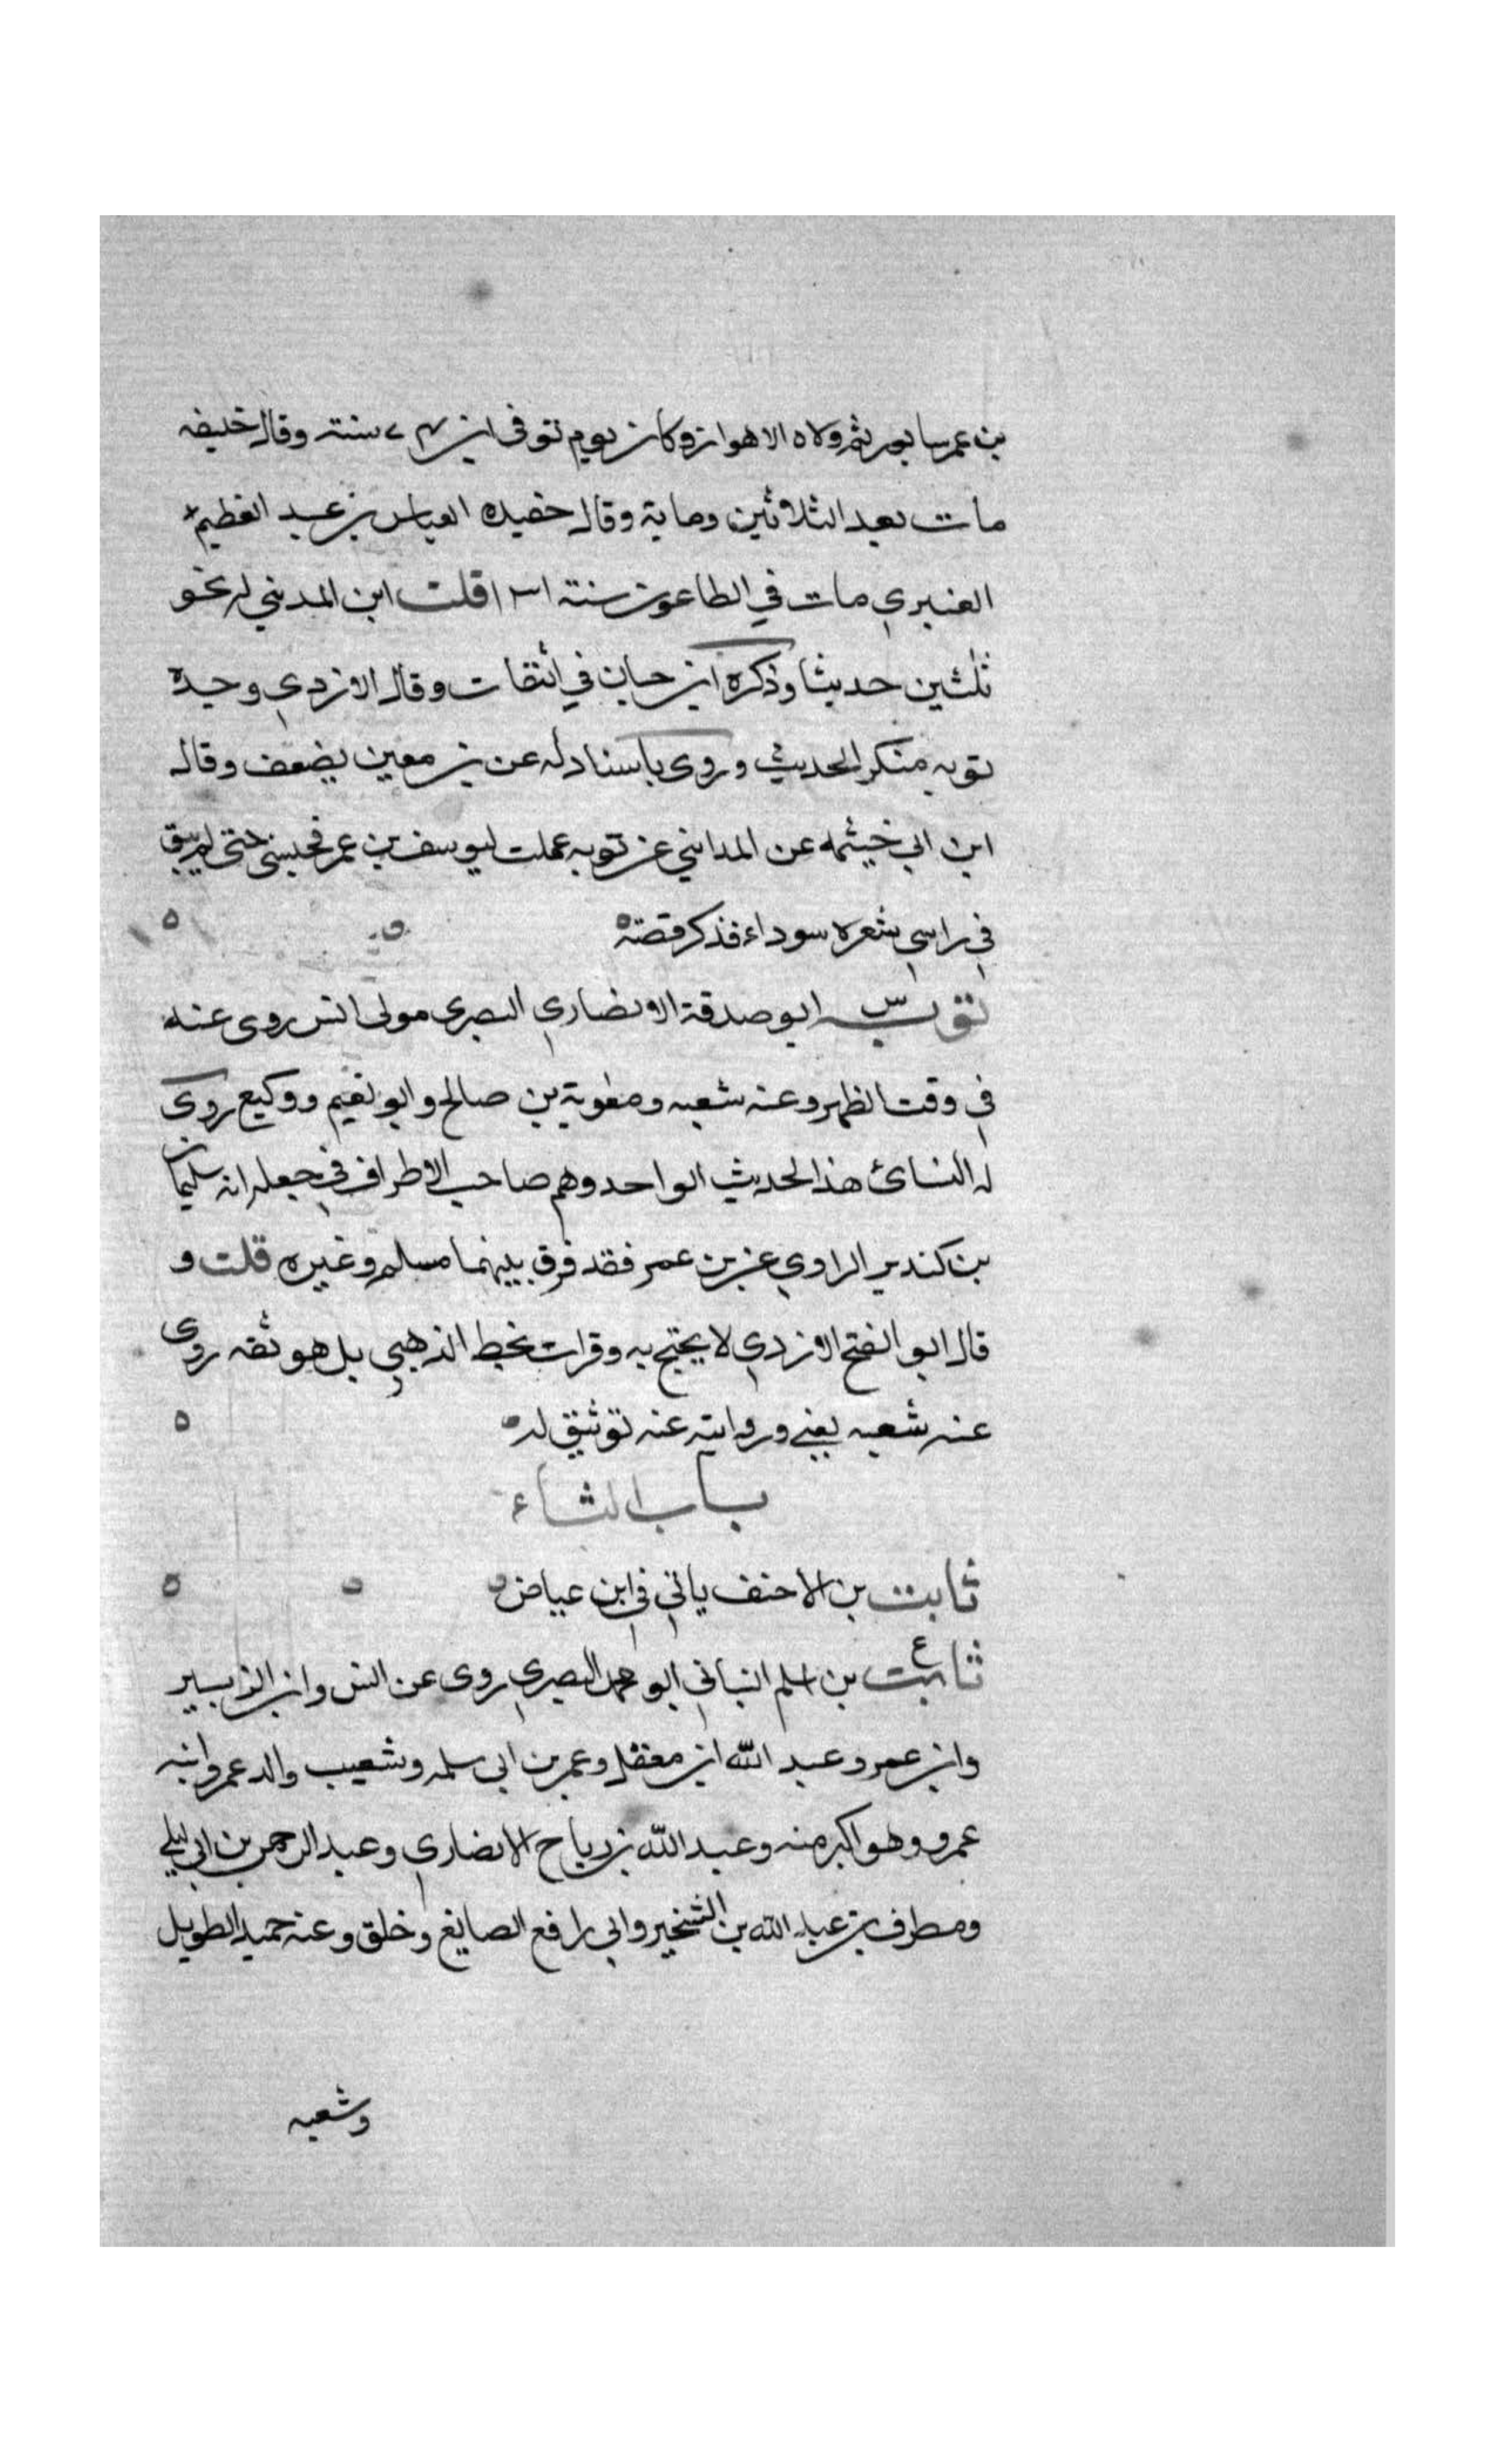 بن عمر سابور ثم ولاه الاهواز وكان يوم توفي ابن ٧٤ سنة وقال خليفه
مات بعد الثلاثين وماية وقال حفيده العباس بن عبد العظيم
العنبري مات في الطاعون سنة ١٣١ قلت ابن المديني له نحو
ثلثين حديثا وذكره ابن حبان في الثقات وقال الازدي وحيده
توبه منكر الحديث وروى باسناد له عن بن معين يضعف وقال
ابن ابي خيثمه عن المدايني عن توبه عملت ليوسف بن عمر فحبسني حتى لم يبق
في راسي شعره سوداء فذكر قصته
توبه س ابو صدقة الانصاري البصرى مولى انس روى عنه
في وقت الظهر وعنه شعبه ومعوية بن صالح وابو نعيم ووكيع روى
له النسائ هذا الحديث الواحد وهم صاحب الاطراف في جعله انه سليمان
بن كندير الراوي عن بن عمر فقد فرق بينهما مسلم وغيره قلت و
قال ابو الفتح الازدي لا يحتج به وقرات بخط الذهبي بل هو ثقه روى
عنه شعبه يعني وروايته عنه توثيق له
باب الثاء
ثابت بن الاحنف ياتي في ابن عياض
ثابت ع بن اسلم البناني ابو محمد البصري روى عن انس وابن الزبير
وابن عمر وعبد الله ابن مغفل وعمر بن ابي سلمه وشعيب والد عمر وابنه
عمرو وهو اكبر منه وعبد الله بن رباح الانصاري وعبد الرحمن بن ابي ليلي
ومطرف بن عبد الله بن الشخير وابي رافع الصايغ وخلق وعنه حميد الطويل
وشعبه